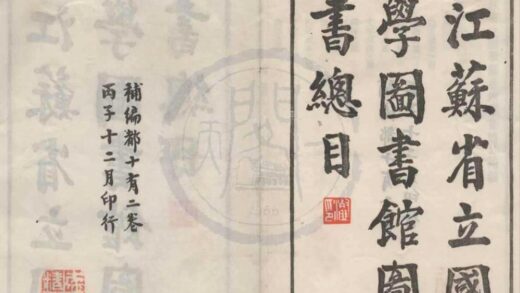 江蘇省立國
學圖書館圖
書總目
補編都十有二卷
丙子十二月印行